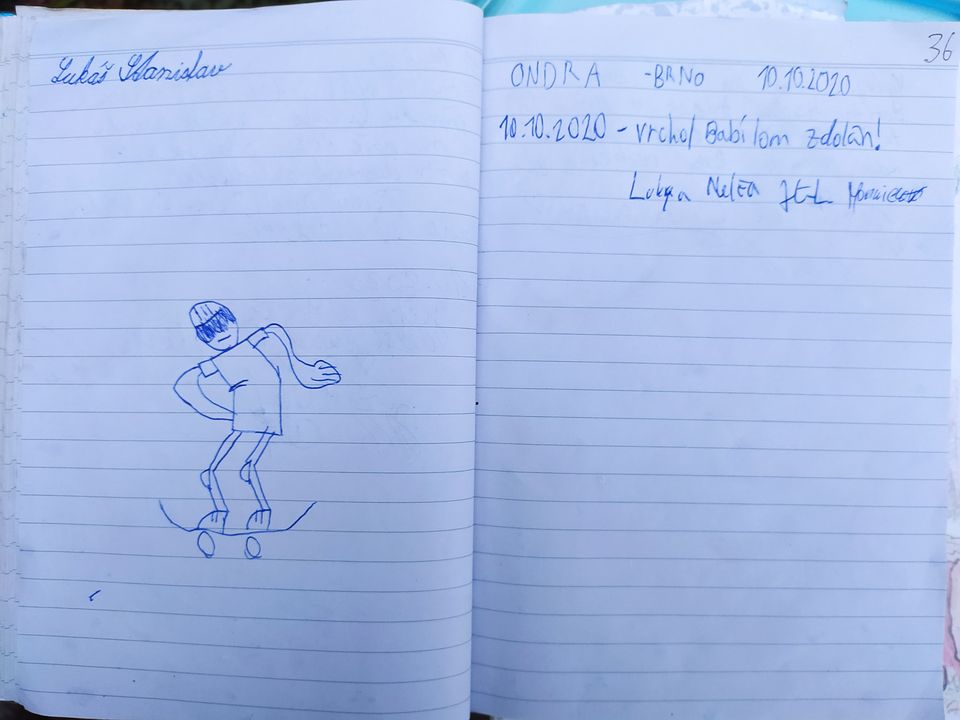 Lukáš Stanislav
36
ONDRA -BRNO 10.10.2020
10.10.2020 - vrchol Babí lom zdolán!